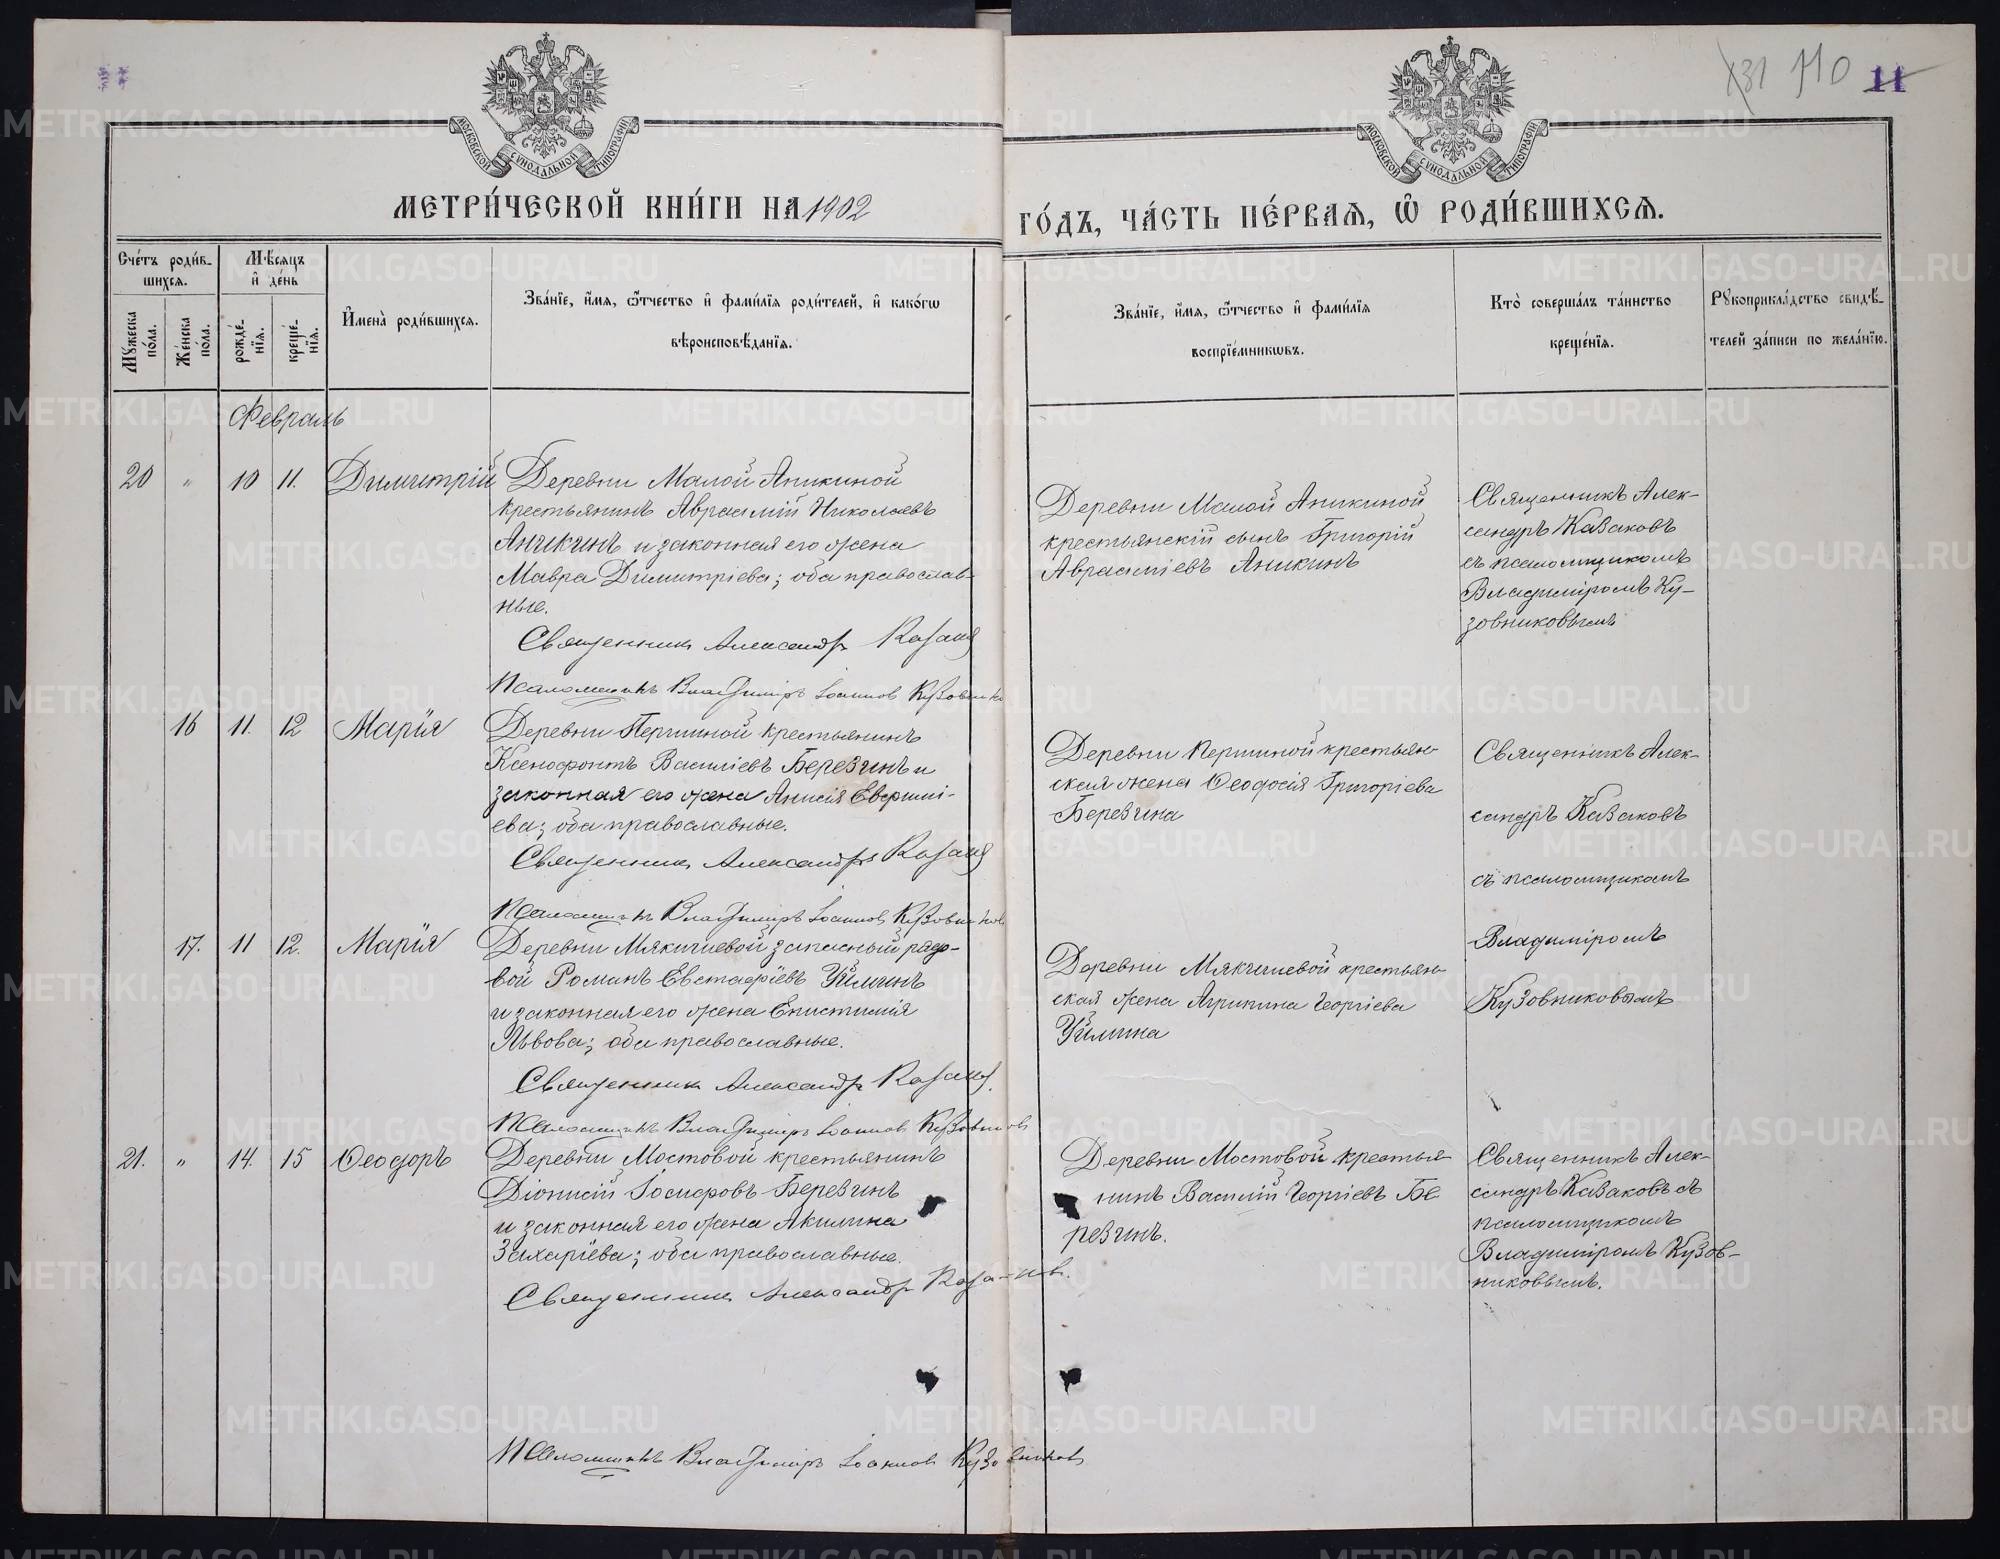 131 110 11
МОСКОВСКОЙ СѴНОДАЛЬНОЙ ТИПОГРАФІИ
МОСКОВСКОЙ СѴНОДАЛЬНОЙ ТИПОГРАФІИ
МЕТРИ́ЧЕСКОЙ КНИ́ГИ НА 1902
ГО́ДЪ, ЧА́СТЬ ПЕ́РВАѦ, Ѿ РОДИ́ВШИХСѦ.
Сче́тъ роди́в-
шихсѧ.
Мꙋжеска
по́ла.
Же́нска
по́ла.
Мѣ́сѧцъ
и҆ де́нь
рожде́-
нїѧ.
креще́-
нїѧ.
И҆мена̀ роди́вшихсѧ.
Зва́нїе, и҆́мѧ, ѻ҆́тчество и҆ фами́лїѧ роди́телей, и҆ како́гѡ
вѣроисповѣ́данїѧ.
Зва́нїе, и҆́мѧ, ѻ҆́тчество и҆ фами́лїѧ
воспрїе́мникѡвъ.
Кто̀ соверша́лъ та́инство
креще́нїѧ.
Рꙋкоприкла́дство свидѣ́-
телей за́писи по жела́нїю.
Февраль
20 " 10 11. Димитрій
Деревни Малой Аникиной
крестьянинъ Авраамій Николаевъ
Аникинъ и законная его жена
Мавра Димитріева; оба православ-
ные.
Священникъ Александръ Казаков
Псаломщикъ Владиміръ Іоаннов Кузовников
Деревни Малой Аникиной
крестьянскій сынъ Григорій
Авраамиевъ Аникинъ
Священникъ Алек-
сандръ Казаковъ
съ псаломщикомъ
Владиміромъ Ку-
зовниковымъ
16 11. 12 Марія
Деревни Першиной крестьянинъ
Ксенофонтъ Василіевъ Березинъ и
законная его жена Анисія Евфимі-
ева; оба православные.
Священникъ Александръ Казаков
Псаломщикъ Владиміръ Іоаннов Кузовников
Деревни Першиной крестьян-
ская жена Ѳеодосія Григоріева
Березина
Священникъ Алек-
сандръ Казаковъ
съ псаломщикомъ
Владиміромъ
Кузовниковымъ
17. 11 12. Марія
Деревни Мякишевой запасный рядо-
вой Романъ Евстафіевъ Уймин
и законная его жена Епистимія
Львова; оба православные.
Священникъ Александръ Казаков.
Псаломщикъ Владиміръ Іоаннов Кузовников
Деревни Мякишевой крестьян-
ская жена Агрипина Георгіева
Уймина
21. " 14. 15 Ѳеодоръ
Деревни Мостовой крестьянинъ
Діонисій Іосифовъ Березинъ
и законная его жена Акилина
Захаріева; оба православные.
Священникъ Александръ Казаков.
Псаломщикъ Владиміръ Іоаннов Кузовников
Деревни Мостовой крестья-
нинъ Василій Георгіевъ Бе
резинъ.
Священникъ Алек-
сандръ Казаковъ съ
псаломщикомъ
Владиміромъ Кузов-
никовымъ.
METRIKI.GASO-URAL.RU